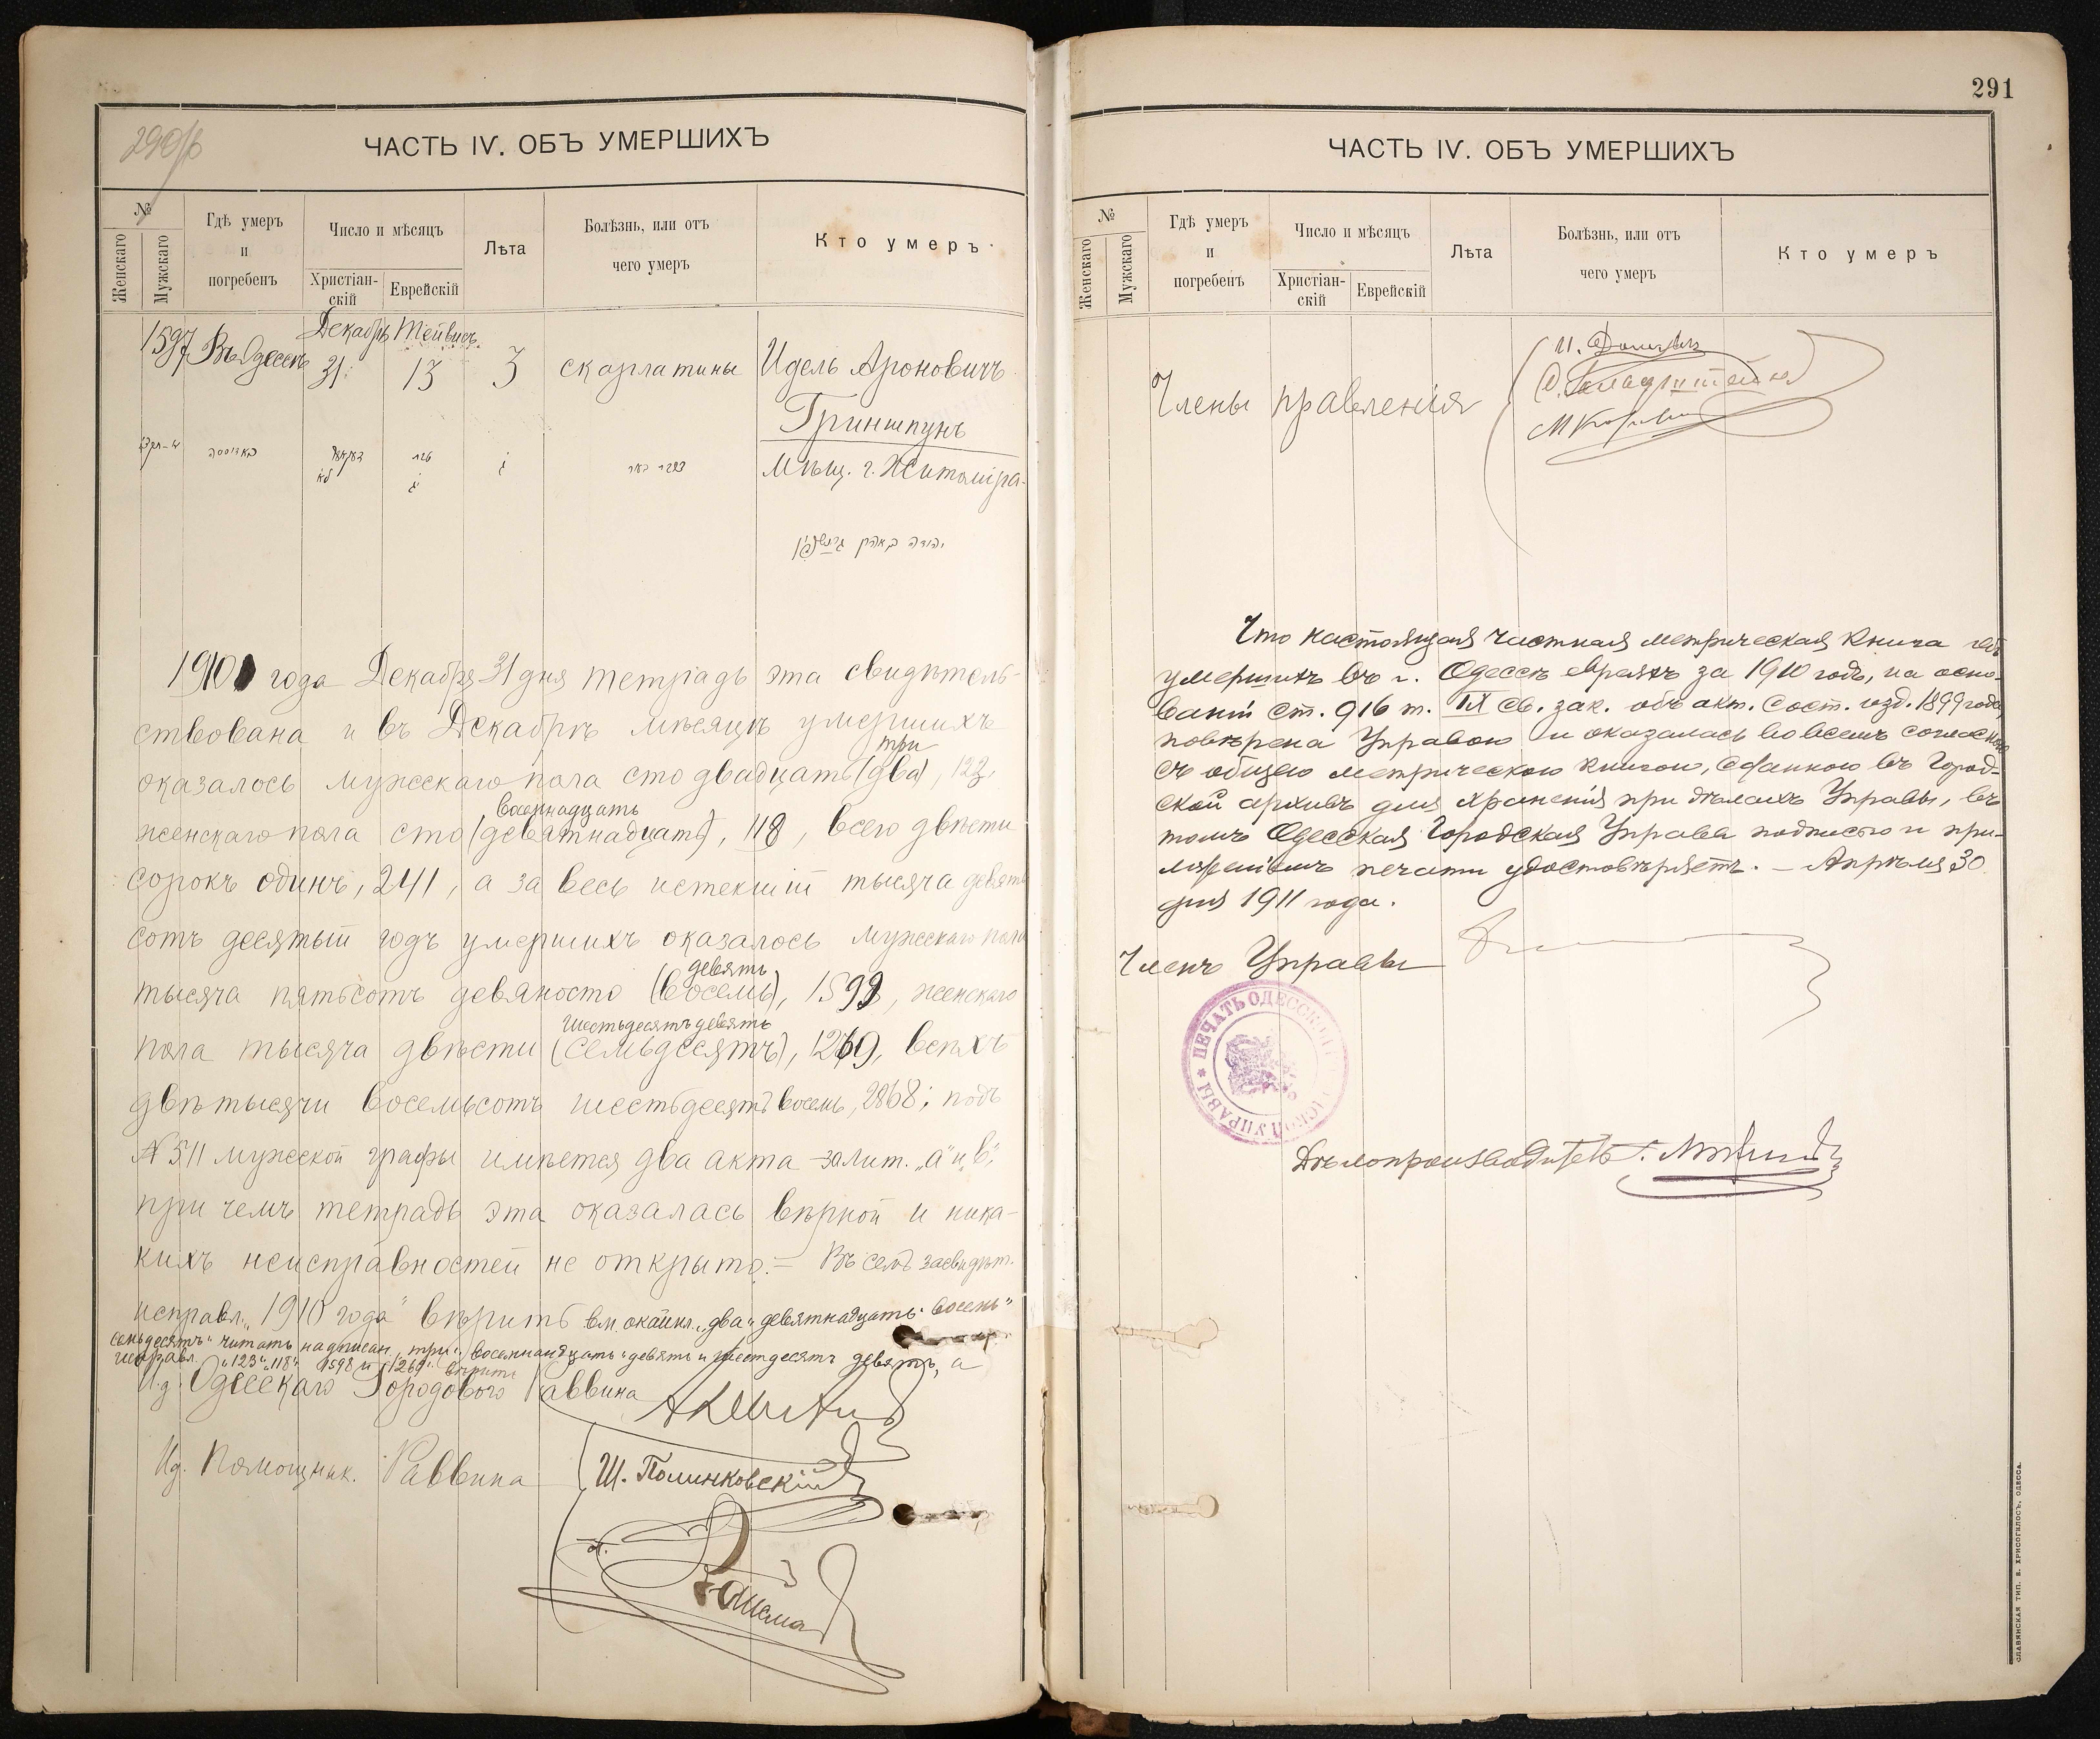 290/б
ЧАСТЬ IV. ОБЪ УМЕРШИХЪ
№
Женскаго
Мужскаго
Гдѣ умеръ
и
погребенъ
Число и мѣсяцъ
Христіан-
скій
Еврейскій
Лѣта
Болѣзнь, или отъ
чего умеръ
Кто умеръ
Декабрь Тейвисъ
1597 Въ Одессѣ 31 13 3 скарлатины Идель Ароновичъ
Гриншпунъ
Мѣщ. г. Житоміра
יהודה באהרן גרינשפון
1910 года Декабря 31 дня тетрадь эта свидѣтель-
ствована и въ Декабрѣ мѣсяцѣ умершихъ
три
оказалось мужескаго пола сто двадцать (два), 123,
восемнадцать
женскаго пола сто (девятнадцать), 118, всего двѣсти
сорокъ одинъ, 241, а за весь истекшій тысяча девять
сотъ десятый годъ умершихъ оказалось мужескаго пола
девять
тысяча пятьсотъ девяносто (восемь), 1599, женскаго
шестьдесятъ девять
пола тысяча двѣсти (семьдесятъ), 1269, всѣхъ
двѣ тысячи восемьсотъ шестьдесятъ восемь, 2868; подъ
№ 511 мужской графы имѣется два акта за лит. „а“ и „в“,
при чемъ тетрадь эта оказалась вѣрной и ника-
кихъ неисправностей не открыто. — Въ семъ засвидѣт.
исправл. „1910 года“ вѣрить вм. „два“ „девятнадцать“ „восемь“
семьдесятъ“ читать надписан. „три“, „восемнадцать“ „девять и шестдесятъ девять, а
исправл. „123“ „118“ 1598 и „1269“ вѣрить
И.д. Одесскаго Городового Раввина
Ид. Помощник. Раввина Ш. Полинковскій
291
ЧАСТЬ IV. ОБЪ УМЕРШИХЪ
№
Женскаго
Мужскаго
Гдѣ умеръ
и
погребенъ
Число и мѣсяцъ
Христіан-
скій
Еврейскій
Лѣта
Болѣзнь, или отъ
чего умеръ
Кто умеръ
Члены правленія
Что настоящая частная метрическая книга объ
умершихъ въ г. Одессѣ евреяхъ за 1910 годъ, на осно-
ваніи ст. 916 т. IX св. зак. объ акт. сост. изд. 1899 года,
повѣрена Управою и оказалась во всемъ согласною
съ общею метрическою книгою, сданною въ Город-
ской архивъ для храненія при дѣлахъ Управы, въ
томъ Одесская Городская Управа подписью и при-
ложеніемъ печати удостовѣряетъ. — Апрѣля 30
дня 1911 года.
Членъ Управы
ПЕЧАТЬ ОДЕССКОЙ ГОРОДСКОЙ УПРАВЫ
Дѣлопроизводитель
СЛАВЯНСКАЯ ТИП. Е. ХРИСОГЕЛОСЪ, ОДЕССА.